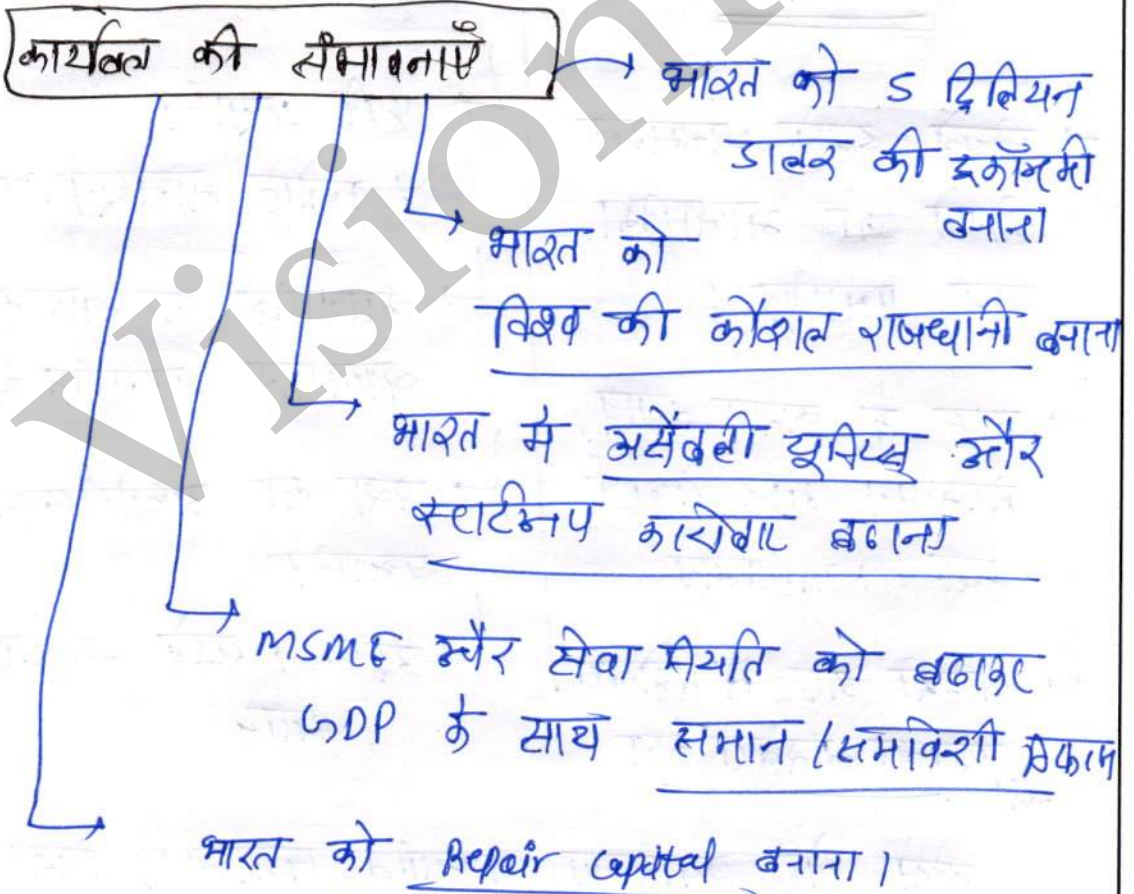 कार्यबल की संभावनाएँ
भारत को 5 ट्रिलियन
डालर की इकॉनमी
बनाना
भारत को
विश्व की कौशल राजधानी बनाना
भारत में असेंबली यूनिट्स और
स्टार्टअप कारोबार बढाना
MSME और सेवा निर्यात को बढाकर
GDP के साथ समान / समावेशी विकास
भारत को Repair Capital बनाना।
Vision